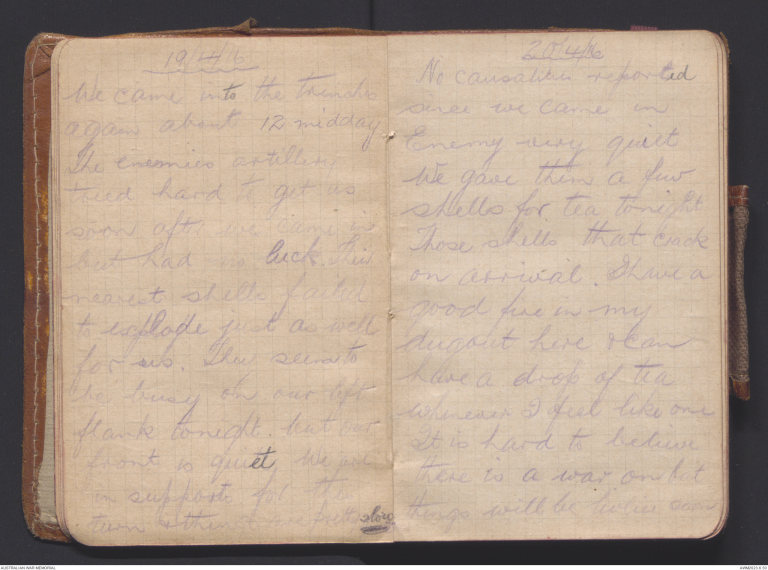 19/4/16
We came into the trenches
again about 12 midday
The enemies artillery
tried hard to get us
soon aft we came in
but had no luck. Their
nearest shells failed
to explode just as well
for us. They seem to
be busy on our left
flank tonight. but our
front is quiet We are
in support for this
turn & things pretty
slow
20/4/16
No causalties reported
since we came in
Enemy very quiet
We gave them a few
shells for tea tonight
Those shells that crack
on arrival. I have a
good fire in my
dugout here & can
have a drop of tea
whenever I feel like one
It is hard to believe
there is a war on but
things will be soon
AUSTRALIAN WAR MEMORIAL